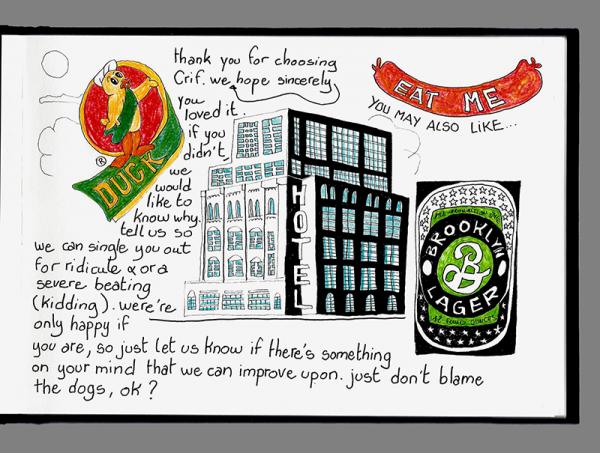 thank you for choosing
Crif. we hope sincerely
you
loved it.
if you
didn't,
we
would
like to
know why.
tell us so
we can single you out
for ridicule & or a
severe beating
(kidding). were're
only happy if
you are, so just let us know if there's something
on your mind that we can improve upon. just don't blame
the dogs, ok?
DUCK
®
HOTEL
EAT ME
YOU MAY ALSO LIKE...
BROOKLYN
B
LAGER